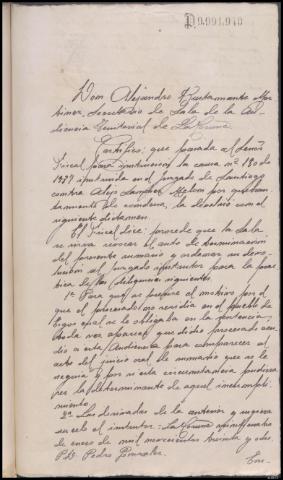 D9.991.940
Don Alejandro Bustamante Mar-
tinez, Secretario de Sala de la Au-
diencia Territorial de La Coruña.
Certifico: que pasada al Señor
Fiscal para instrucción la causa nº 190 de
1937 instruida en el Juzgado de Santiago
contra Alejo por quebran-
tamiento de condena, la devolvió con el
siguiente dictamen.
El Fiscal dice: procede que la Sala
se sirva revocar el auto de terminación
del presente sumario y ordenar su devo-
lución al Juzgado instructor para la prac-
tica de las diligencias siguientes:
1ª Para que se exprese el motivo por el
que el procesado no residia en el pueblo de
al que se le obligaba en la sentencia,
toda vez aparece que dicho procesado acu-
dió a esta Audiencia para comparecer al
acto del juicio oral de sumario que se le
seguia y por si esta circunstancia pudiera
ser la determinante de aquel incumpli-
miento.
2ª Las derivadas de la anterior y sugiera
su celo al instructor. La Coruña
de enero de mil novecientos treinta y ocho.
P.D. Pedro Gonzalez.
Con-